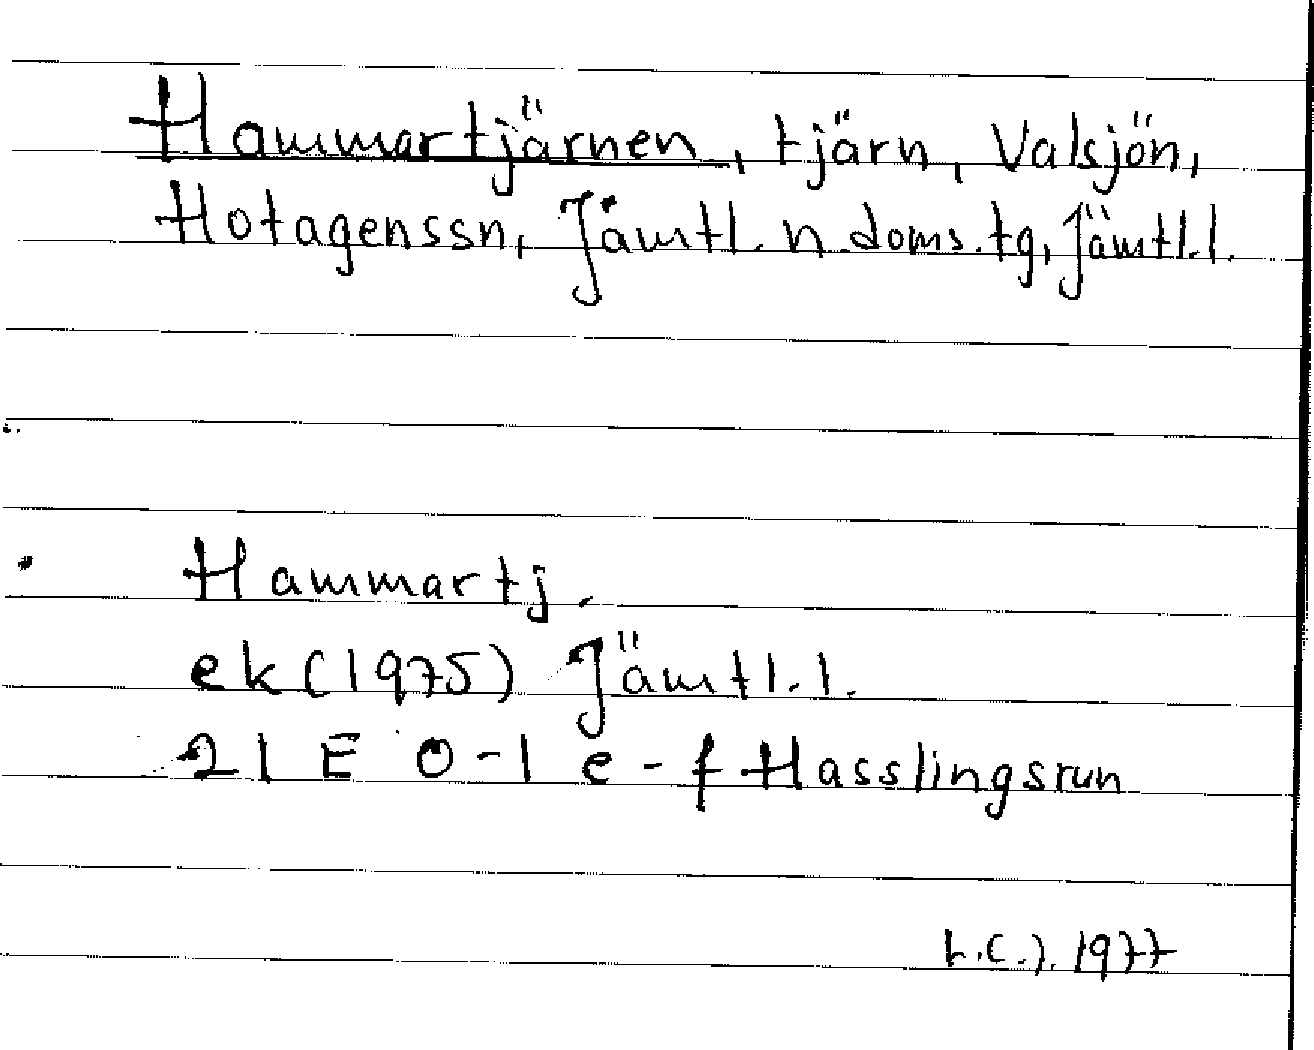 Hammartjärnen, tjärn, Valsjön,
Hotagenssn, Jämtl. n. doms. tg, Jämtl. l.
Hammartj.
ek (1975) Jämtl. l.
21 E 0-1 e-f Hasslingsrun
1977